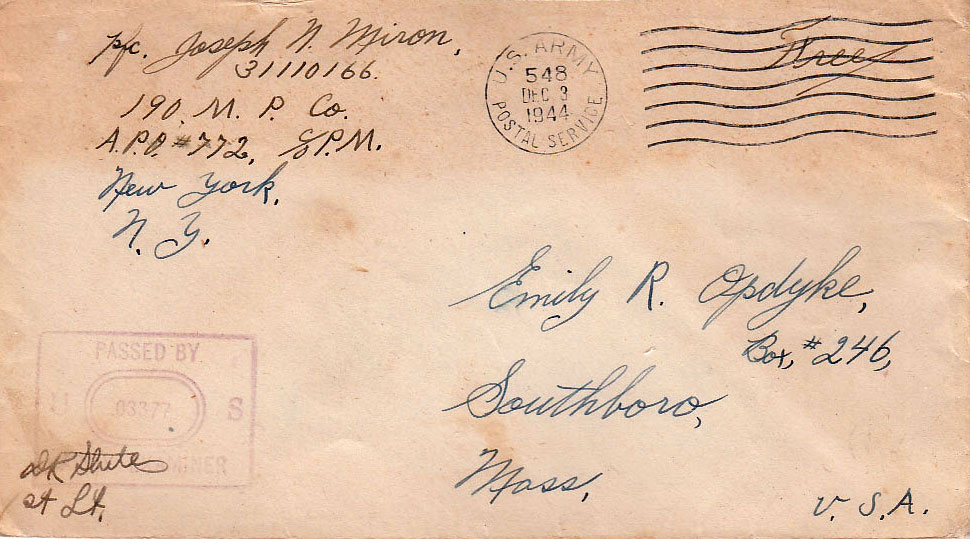 Pfc. Joseph N. Miron,
31110166.
190, M. P. Co.
A.P.O. #772, %P.M.
New York,
N. Y.
U.S. ARMY
548
DEC 3
1944
POSTAL SERVICE
Free
Emily R. Opdyke,
Box, #246,
Southboro,
Mass,
U. S. A.
PASSED BY
U 03377 S
MINER